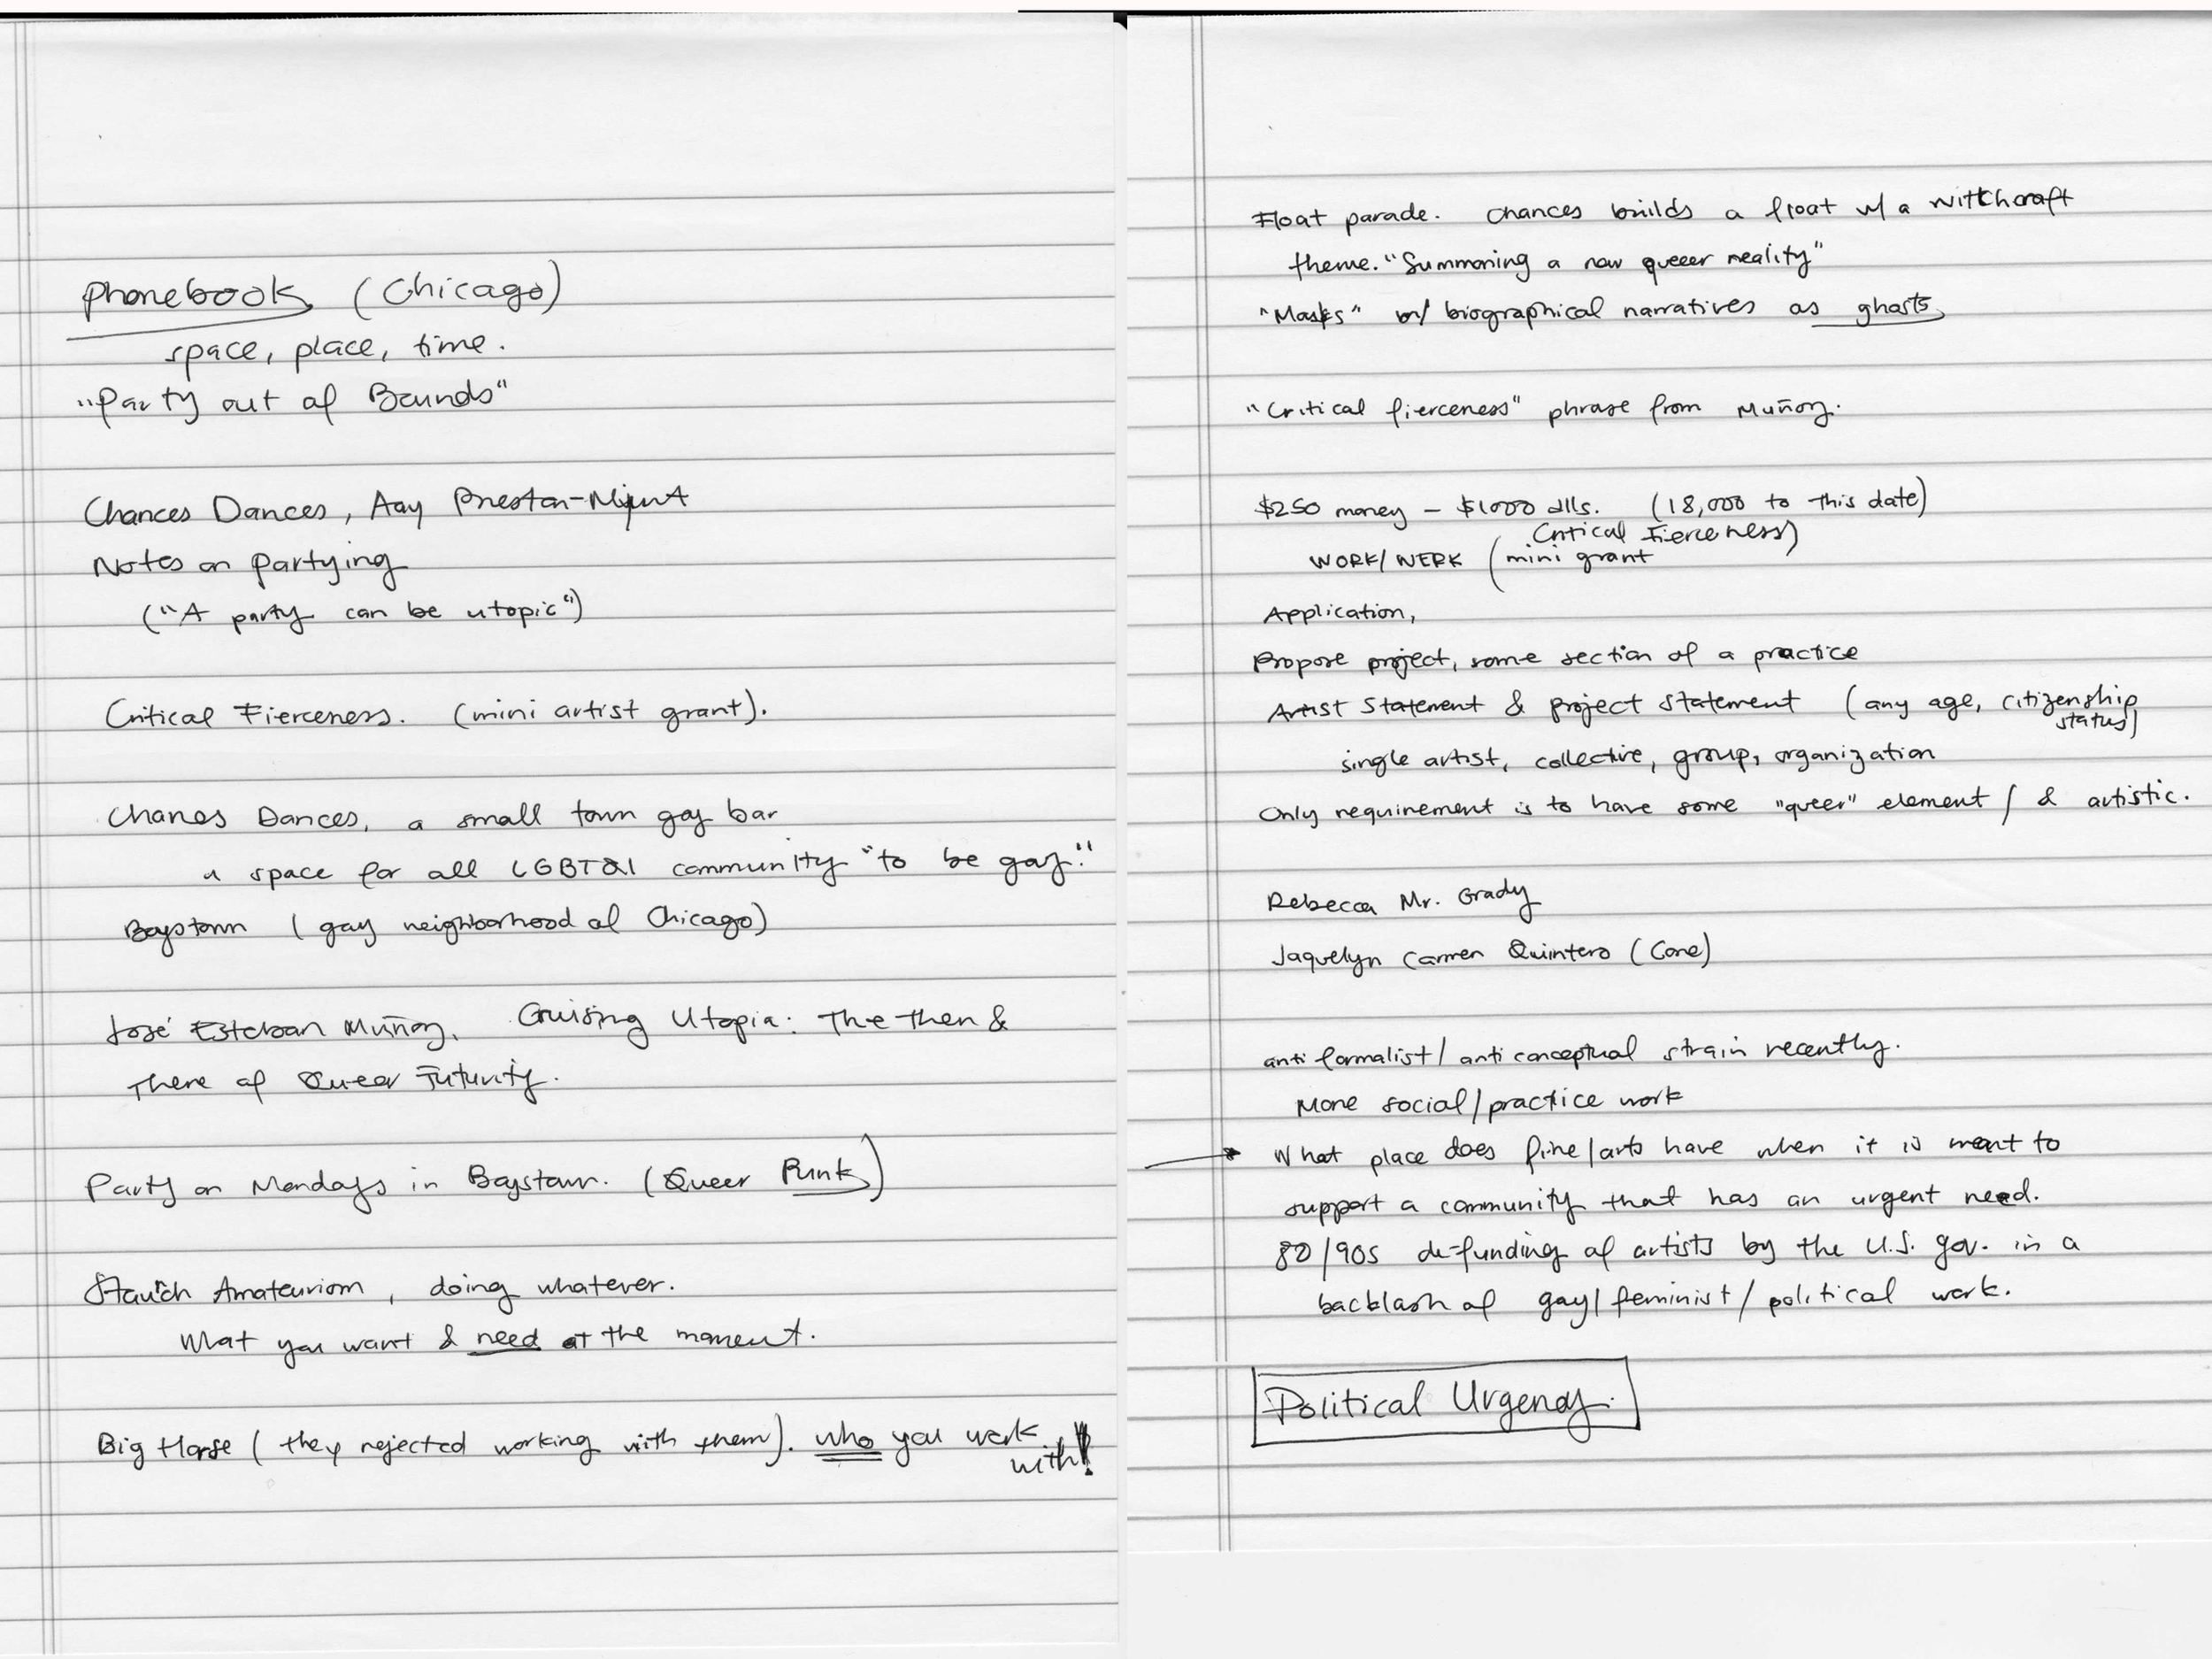 Phonebook (Chicago)
space, place, time.
"Party out of Bounds"
Chances Dances, Aay Preston-Myint
Notes on Partying
("A party can be utopic")
Critical Fierceness. (mini artist grant).
Chances Dances, a small town gay bar
a space for all LGBTQI community "to be gay."
Boystown (gay neighborhood of Chicago)
José Esteban Muñoz, Cruising Utopia: The Then &
There of Queer Futurity.
Party on Mondays in Boystown. (Queer Punk)
Stauch Amateurism, doing whatever.
What you want & need at the moment.
Big Horse (they rejected working with them). who you work
with!
Float parade. Chances builds a float w/ a wittchcraft
theme. "Summoning a new queeer reality"
"Masks" w/ biographical narratives as ghosts
"Critical fierceness" phrase from Muñoz.
$250 money – $1000 dlls. (18,000 to this date)
Critical Fierceness)
WORK/WERK (mini grant
Application,
Propose project, some section of a practice
Artist Statement & project statement (any age, citizenship
status)
single artist, collective, group, organization
Only requirement is to have some "queer" element / & artistic.
Rebecca Mr. Grady
Jaquelyn Carmen Quintero (Cone)
anti formalist/ anti conceptual strain recently.
More social/practice work
→ What place does fine/arts have when it is meant to
support a community that has an urgent need.
80/90s de-funding of artists by the U.S. gov. in a
backlash of gay/ feminist/ political work.
Political Urgency.